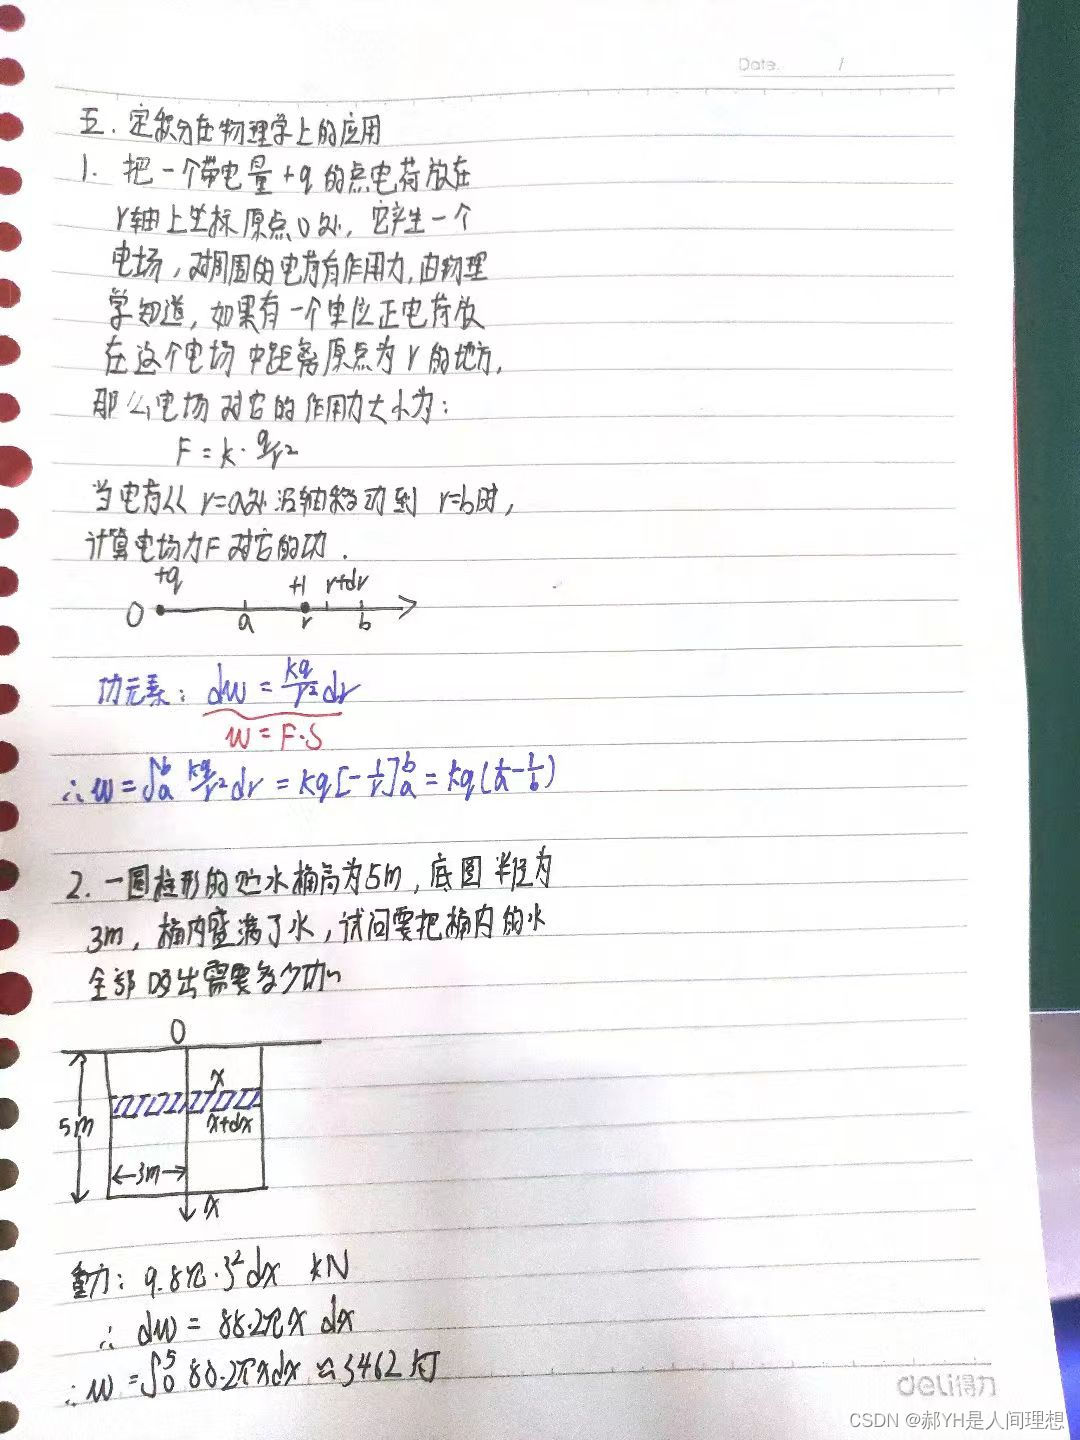 Date. /
五. 定积分在物理学上的应用
1. 把一个带电量+q的点电荷放在
r轴上坐标原点0处, 它产生一个
电场, 对周围的电荷有作用力, 由物理
学知道, 如果有一个单位正电荷放
在这个电场中距离原点为r的地方,
那么电场对它的作用力大小为:
F = k · q/r²
当电荷从 r=a处沿轴移动到 r=b时,
计算电场力F对它的功.
+q +1 r+dr
O a r b
功元素: dw = kq/r² dr
w = F·S
∴ w = ∫ₐᵇ kq/r² dr = kq[-1/r]ₐᵇ = kq(1/a - 1/b)
2. 一圆柱形的贮水桶高为5m, 底圆半径为
3m, 桶内盛满了水, 试问要把桶内的水
全部吸出需要多少功?
O
x
5m x+dx
3m
x
重力: 9.8π·3²dx kN
∴ dw = 88.2πx dx
∴ w = ∫₀⁵ 88.2πxdx ≈ 3462 kJ
deli得力
CSDN @郝YH是人间理想